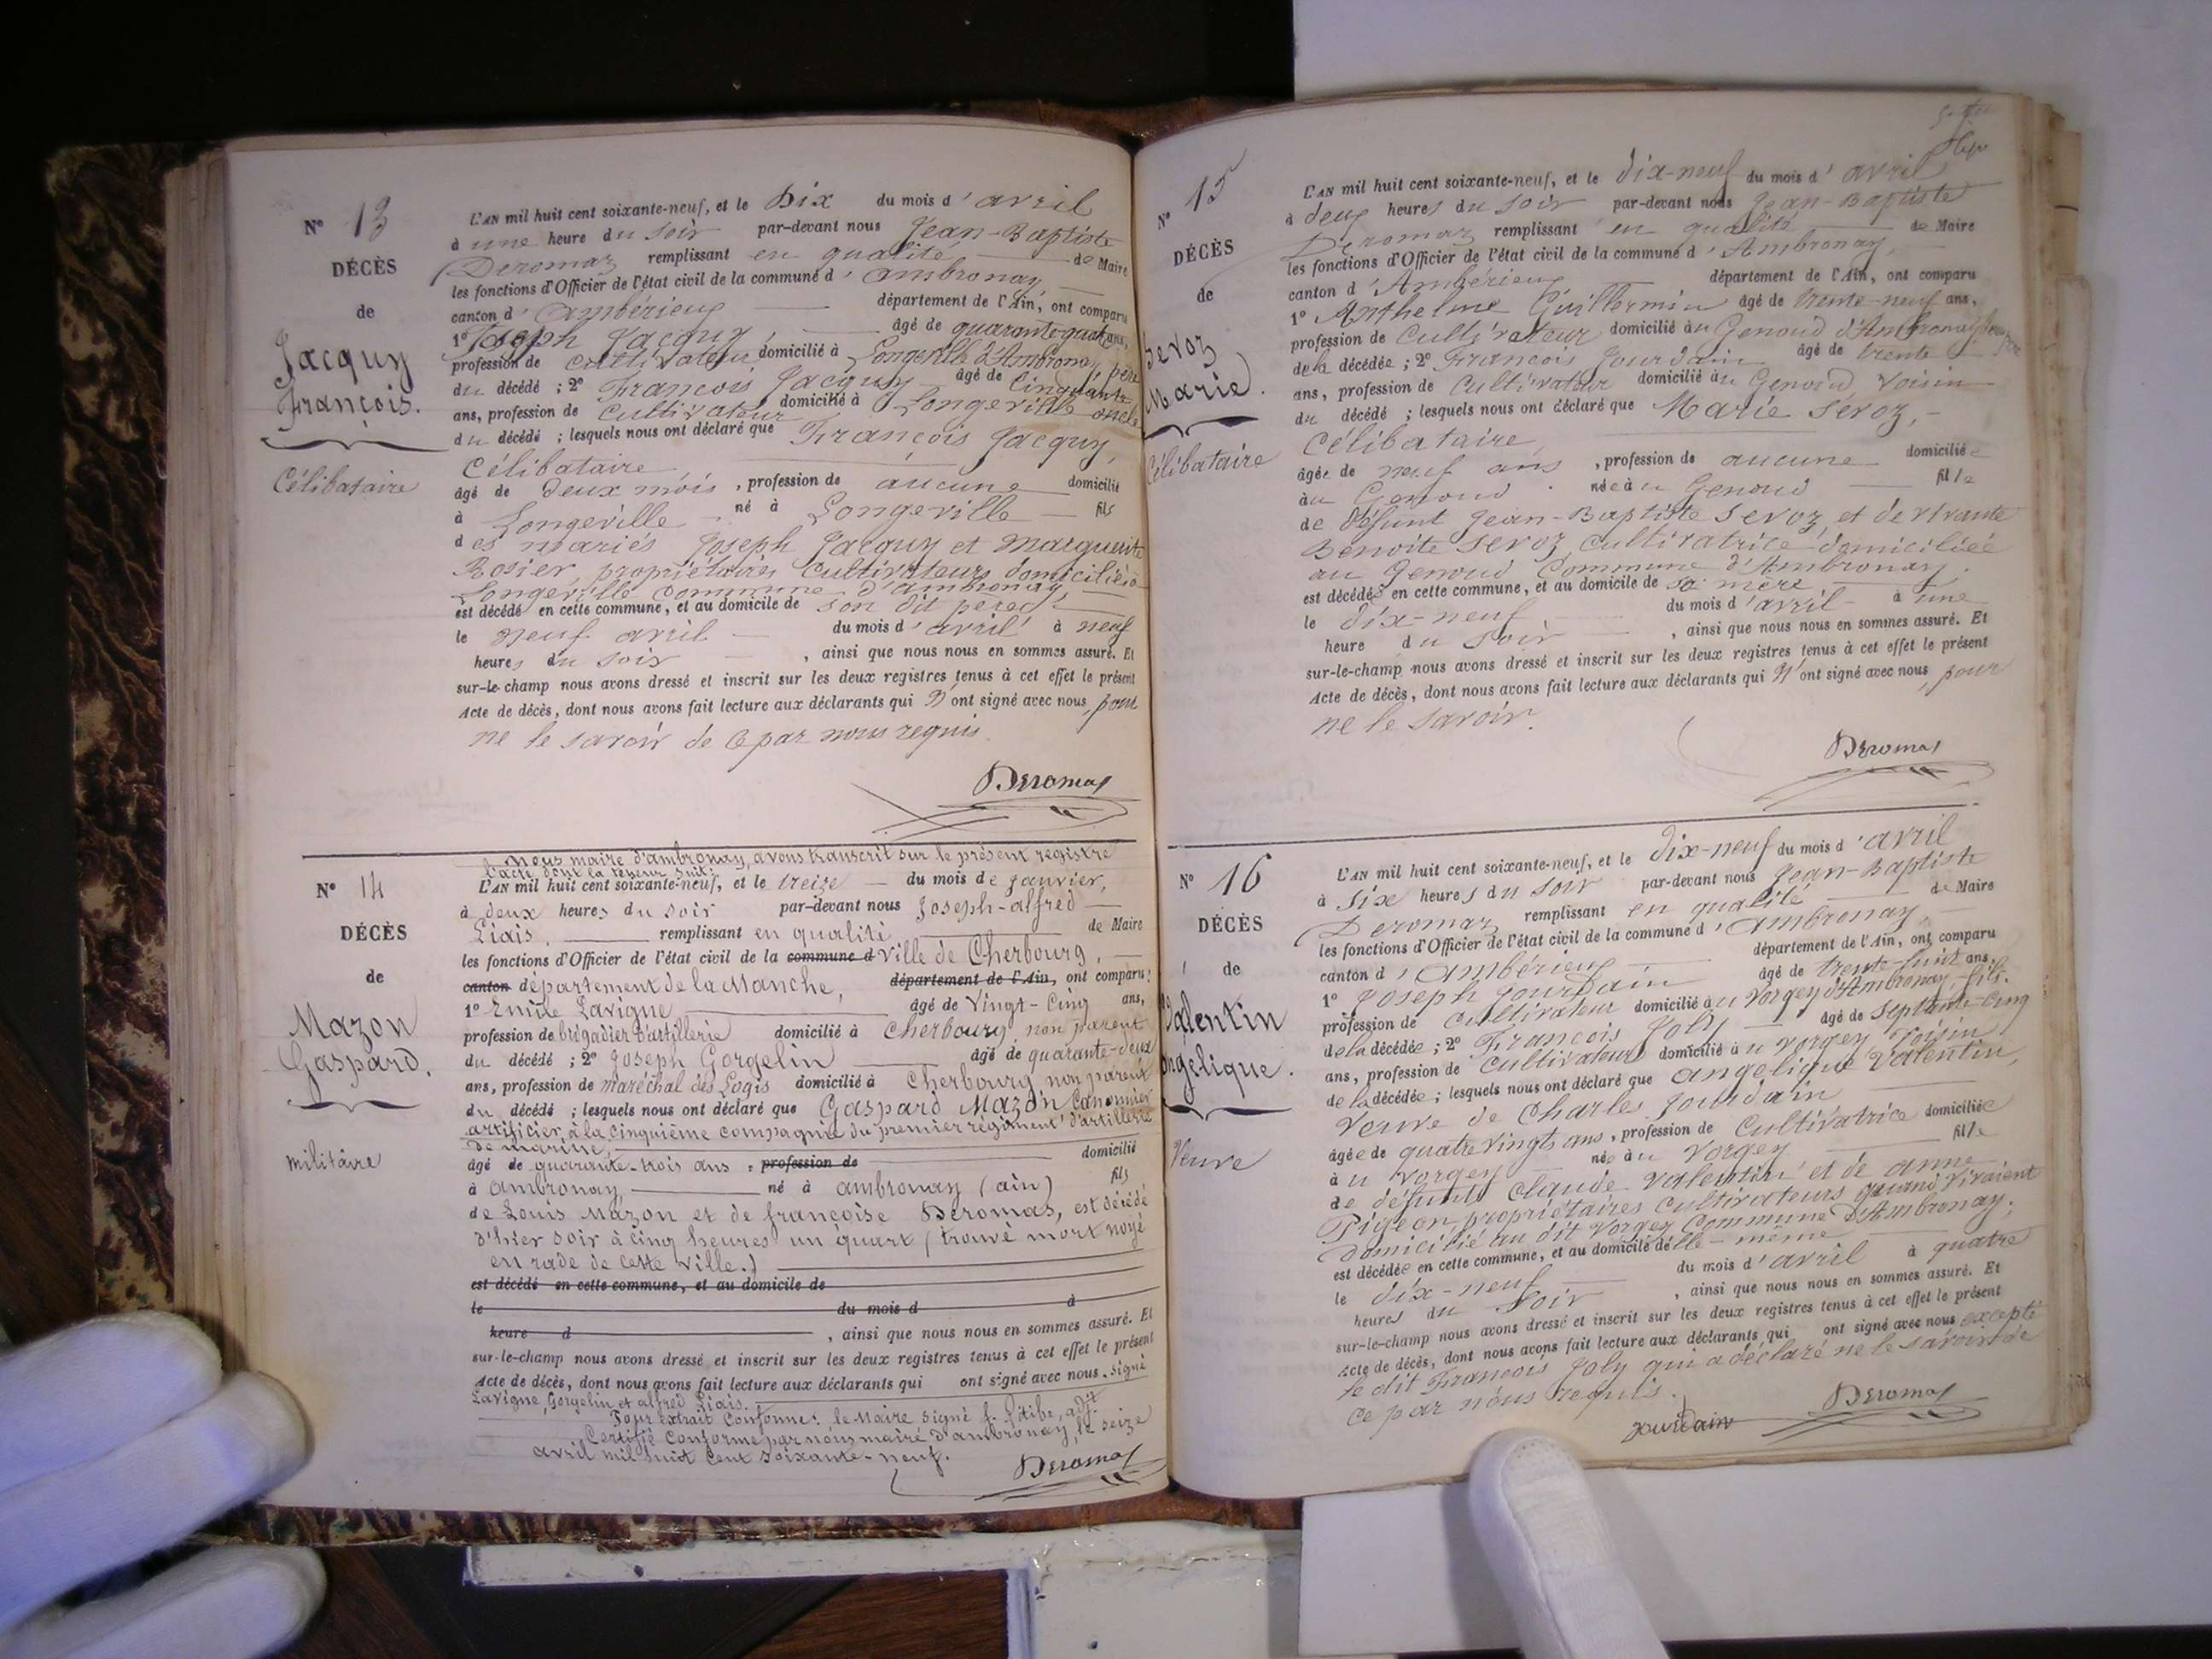 N° 13
DÉCÈS
de
Jacquy
François.
Célibataire
L'AN mil huit cent soixante-neuf, et le Dix du mois d'avril
à une heure du soir par-devant nous Jean-Baptiste
Deromas remplissant en qualité de Maire
les fonctions d'Officier de l'état civil de la commune d'ambronay
canton d'ambérieux département de l'Ain, ont comparu
1° Joseph Jacquy, âgé de quarante quatre ans,
profession de cultivateur domicilié à Longeville d'Ambronay, père
du décédé ; 2° François Jacquy âgé de cinquante
ans, profession de cultivateur domicilié à Longeville oncle
du décédé ; lesquels nous ont déclaré que François Jacquy,
Célibataire
âgé de deux mois, profession de aucune domicilié
à Longeville né à Longeville fils
des mariés Joseph Jacquy et Marguerite
Rosier, propriétaires cultivateurs domiciliés à
Longeville commune d'ambronay,
est décédé en cette commune, et au domicile de son dit père
le neuf avril du mois d'avril à neuf
heures du soir, ainsi que nous nous en sommes assuré. Et
sur-le-champ nous avons dressé et inscrit sur les deux registres tenus à cet effet le présent
Acte de décès, dont nous avons fait lecture aux déclarants qui n'ont signé avec nous, pour
ne le savoir de ce par nous requis.
Deromas
N° 14
DÉCÈS
de
Mazon
Gaspard.
militaire
Nous maire d'ambronay, avons transcrit sur le présent registre
l'acte dont la teneur suit:
L'AN mil huit cent soixante-neuf, et le treize du mois de janvier,
à deux heures du soir par-devant nous Joseph-alfred
Liais, remplissant en qualité de Maire
les fonctions d'Officier de l'état civil de la commune d ville de Cherbourg,
canton département de la Manche, département de l'Ain, ont comparu:
1° Emile Lavigne âgé de vingt-cinq ans,
profession de brigadier d'artillerie domicilié à Cherbourg, non parent
du décédé ; 2° Joseph Gorgelin âgé de quarante-deux
ans, profession de maréchal des Logis domicilié à Cherbourg non parent
du décédé ; lesquels nous ont déclaré que Gaspard Mazon Canonnier
artificier, à la cinquième compagnie du premier régiment d'artillerie
de marine,
âgé de quarante-trois ans, profession de domicilié
à ambronay, né à ambronay (ain) fils
de Louis Mazon et de françoise Deromas, est décédé
d'hier soir à cinq heures un quart (trouvé mort noyé
en rade de cette ville.)
est décédé en cette commune, et au domicile de
le du mois d à
heure d, ainsi que nous nous en sommes assuré. Et
sur-le-champ nous avons dressé et inscrit sur les deux registres tenus à cet effet le présent
Acte de décès, dont nous avons fait lecture aux déclarants qui ont signé avec nous. signé
Lavigne, Gorgelin et alfred Liais.
Pour extrait conforme: le Maire signé adjt
Certifié conforme par nous maire d'ambronay, le seize
avril mil huit cent soixante-neuf.
Deromas
N° 15
DÉCÈS
de
Sevoz
Marie.
Célibataire
L'AN mil huit cent soixante-neuf, et le dix-neuf du mois d'avril
à deux heures du soir par-devant nous Jean-Baptiste
Deromas remplissant en qualité de Maire
les fonctions d'Officier de l'état civil de la commune d'Ambronay,
canton d'Ambérieux département de l'Ain, ont comparu
1° Anthelme Guillermin âgé de trente-neuf ans,
profession de cultivateur domicilié au Genoud d'Ambronay
de la décédée ; 2° François Jourdain âgé de trente
ans, profession de Cultivateur domicilié au Genoud, voisin
du décédé ; lesquels nous ont déclaré que Marie Sevoz,
célibataire
âgée de neuf ans, profession de aucune domiciliée
au Genoud née au Genoud fille
de défunt Jean-Baptiste Sevoz, et de vivante
Benoite Sevoz cultivatrice domiciliée
au Genoud Commune d'Ambronay.
est décédée en cette commune, et au domicile de sa mère
le dix-neuf du mois d'avril à une
heure du soir, ainsi que nous nous en sommes assuré. Et
sur-le-champ nous avons dressé et inscrit sur les deux registres tenus à cet effet le présent
Acte de décès, dont nous avons fait lecture aux déclarants qui n'ont signé avec nous, pour
ne le savoir.
Deromas
N° 16
DÉCÈS
de
Valentin
Angelique.
Veuve
L'AN mil huit cent soixante-neuf, et le dix-neuf du mois d'avril
à six heures du soir par-devant nous Jean-Baptiste
Deromas remplissant en qualité de Maire
les fonctions d'Officier de l'état civil de la commune d'Ambronay
canton d'Ambérieux département de l'Ain, ont comparu
1° Joseph Jourdain âgé de trente-huit ans,
profession de cultivateur domicilié au Vorgey d'Ambronay, fils.
de la décédée ; 2° François Joly âgé de septante-cinq
ans, profession de cultivateur domicilié au Vorgey voisin
de la décédée ; lesquels nous ont déclaré que angelique Valentin,
veuve de Charles Jourdain
âgée de quatre vingts ans, profession de Cultivatrice domiciliée
au Vorgey née au Vorgey fille
de défunts Claude Valentin et de anne
Pigeon, propriétaires cultivateurs quand vivaient
domicilié au dit Vorgey Commune d'Ambronay;
est décédée en cette commune, et au domicile d'elle-même
le dix-neuf du mois d'avril à quatre
heures du soir, ainsi que nous nous en sommes assuré. Et
sur-le-champ nous avons dressé et inscrit sur les deux registres tenus à cet effet le présent
Acte de décès, dont nous avons fait lecture aux déclarants qui ont signé avec nous excepté
le dit François Joly qui a déclaré ne le savoir de
ce par nous requis.
Jourdain Deromas